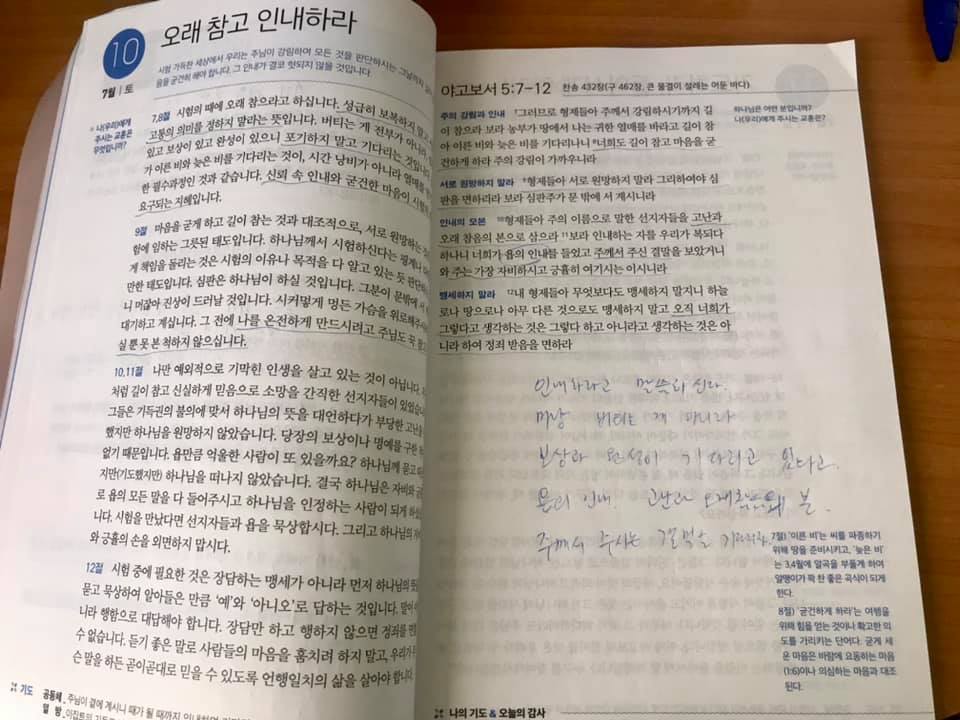 10
7월 | 토
오래 참고 인내하라
시험 가득한 세상에서 우리는 주님이 강림하여 모든 것을 판단하시는 그날까지
음을 굳건히 해야 합니다. 그 인내가 결코 헛되지 않을 것입니다.
나(우리)에게
주시는 교훈은
무엇입니까?
7,8절 시험의 때에 오래 참으라고 하십니다. 성급히 보복하지 말고
고통의 의미를 정하지 말라는 뜻입니다. 버티는 게 전부가 아니라
있고 보상이 있고 완성이 있으니 포기하지 말고 기다리는 것입니다
가 이른 비와 늦은 비를 기다리는 것이, 시간 낭비가 아니라 열매를
한 필수과정인 것과 같습니다. 신뢰 속 인내와 굳건한 마음이 시험의
요구되는 지혜입니다.
9절 마음을 굳게 하고 길이 참는 것과 대조적으로, 서로 원망하는 것
험에 임하는 그릇된 태도입니다. 하나님께서 시험하신다는 핑계나
게 책임을 돌리는 것은 시험의 이유나 목적을 다 알고 있는 듯 판단하
만한 태도입니다. 심판은 하나님이 하실 것입니다. 그분이 문밖에 서
니 머잖아 진상이 드러날 것입니다. 시커멓게 멍든 가슴을 위로해주시
대기하고 계십니다. 그 전에 나를 온전하게 만드시려고 주님도 꾹 참고
실 뿐 못 본 척하지 않으십니다.
10,11절 나만 예외적으로 기막힌 인생을 살고 있는 것이 아닙니다.
처럼 길이 참고 신실하게 믿음으로 소망을 간직한 선지자들이 있었습니
그들은 기득권의 불의에 맞서 하나님의 뜻을 대언하다가 부당한 고난을
했지만 하나님을 원망하지 않았습니다. 당장의 보상이나 명예를 구한
없기 때문입니다. 욥만큼 억울한 사람이 또 있을까요? 하나님께 묻고
지만(기도했지만) 하나님을 떠나지 않았습니다. 결국 하나님은 자비와
로 욥의 모든 말을 다 들어주시고 하나님을 인정하는 사람이 되게 하셨
다. 시험을 만났다면 선지자들과 욥을 묵상합시다. 그리고 하나님의
와 긍휼의 손을 외면하지 맙시다.
12절 시험 중에 필요한 것은 장담하는 맹세가 아니라 먼저 하나님의 뜻
묻고 묵상하여 알아들은 만큼 '예'와 '아니오'로 답하는 것입니다. 말이
니라 행함으로 대답해야 합니다. 장담만 하고 행하지 않으면 정죄를
수 없습니다. 듣기 좋은 말로 사람들의 마음을 훔치려 하지 말고, 우리가
슨 말을 하든 곧이곧대로 믿을 수 있도록 언행일치의 삶을 살아야 합니다.
기도
공동체_ 주님이 곁에 계시니 때가 될 때까지
열 방_
야고보서 5:7-12 찬송 432장(구 462장, 큰 물결이 설레는 어둔 바다)
주의 강림과 인내 7그러므로 형제들아 주께서 강림하시기까지 길
이 참으라 보라 농부가 땅에서 나는 귀한 열매를 바라고 길이 참
아 이른 비와 늦은 비를 기다리나니 8너희도 길이 참고 마음을 굳
건하게 하라 주의 강림이 가까우니라
서로 원망하지 말라 9형제들아 서로 원망하지 말라 그리하여야 심
판을 면하리라 보라 심판주가 문 밖에 서 계시니라
인내의 모본 10형제들아 주의 이름으로 말한 선지자들을 고난과
오래 참음의 본으로 삼으라 11보라 인내하는 자를 우리가 복되다
하나니 너희가 욥의 인내를 들었고 주께서 주신 결말을 보았거니
와 주는 가장 자비하시고 긍휼히 여기시는 이시니라
맹세하지 말라 12내 형제들아 무엇보다도 맹세하지 말지니 하늘
로나 땅으로나 아무 다른 것으로도 맹세하지 말고 오직 너희가
그렇다고 생각하는 것은 그렇다 하고 아니라고 생각하는 것은 아
니라 하여 정죄 받음을 면하라
하나님은 어떤 분입니까?
나(우리)에게 주시는 교훈은?
인내하라고 말씀하신다.
마냥 버티는 게 아니라
보상과 완성이 기다리고 있다고.
욥의 인내. 고난과 오래참음의 본.
주께서 주시는 결말을 기다리라.
7절) '이른 비'는 씨를 파종하기
위해 땅을 준비시키고, '늦은 비'
는 3,4월에 알곡을 부풀게 하여
알맹이가 꽉 찬 좋은 곡식이 되게
한다.
8절) '굳건하게 하라'는 여행을
위해 힘을 얻는 것이나 확고한 의
도를 가리키는 단어다. 굳게 세
운 마음은 바람에 요동하는 마음
(1:6)이나 의심하는 마음과 대조
된다.
나의 기도 & 오늘의 감사